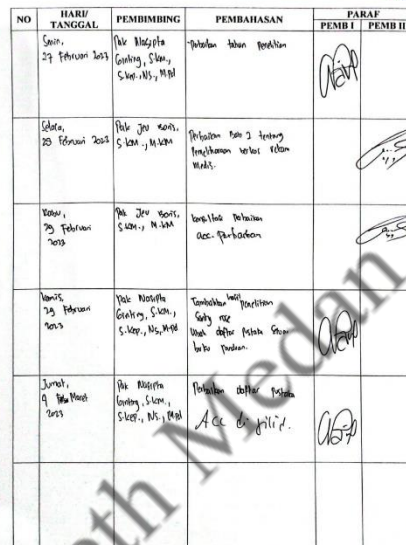 NO HARI/ TANGGAL PEMBIMBING PEMBAHASAN PARAF
PEMB I PEMB II
Senin,
27 Februari 2023
Pak Nasipta
Ginting, S.KM.,
S.Kep., Ns., M.Pd
Perbaikan tahun Penelitian
Selasa,
Februari 2023
Pak Jev Boris,
S.KM., M.KM
Perbaikan Bab 2 tentang
Pemeliharaan berkas rekam
Medis.
Rabu,
29 Februari
2023
Pak Jev Boris,
S.KM., M.KM
Perbaikan
acc. Perbaikan
Kamis,
29 Februari
2023
Pak Nasipta
Ginting, S.KM.,
S.Kep., Ns, M.Pd
Tambahkan hasil Penelitian
daftar Pustaka
buku Panduan.
Jumat,
Maret
2023
Pak Nasipta
Ginting, S.KM.,
S.Kep., Ns., M.Pd
Perbaikan daftar Pustaka
Acc di jilid.
eth Medan